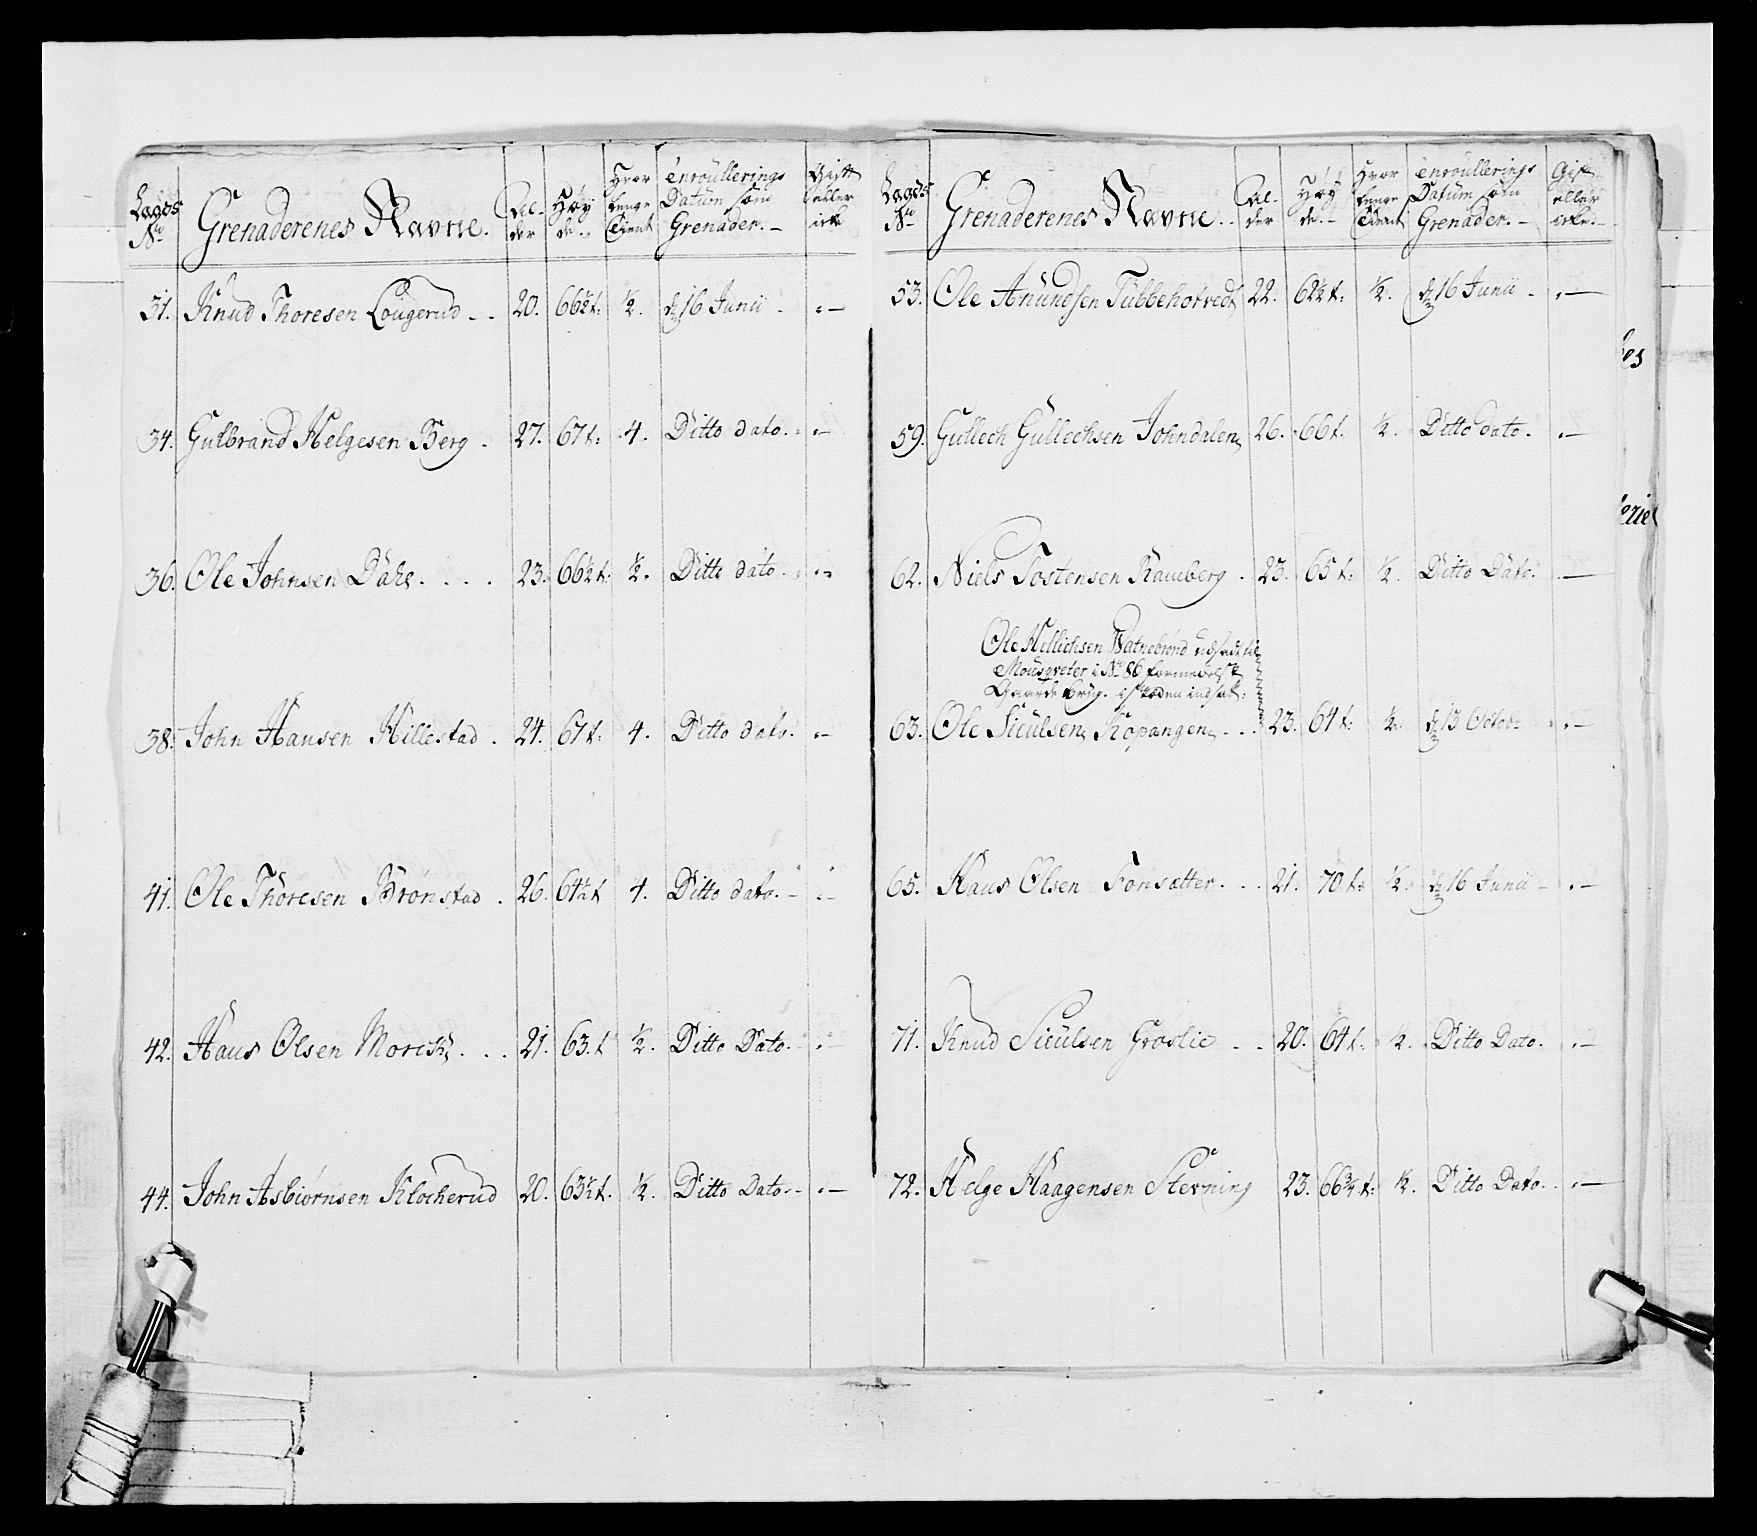 Lægds No | Grenaderenes Navne. | Al- der | Høy de. | Hvor lenge Tient | Enroullerings Datum som Grenader. | Gift eller icke
31. Knud Thoresen Lougerud 20. 66½ t: ½. d 16 Junii
34. Gulbrand Helgesen Berg. 27. 67 t: 4. Ditto dato.
36. Ole Johnsen Dahl 23. 66½ t: ½. Ditto dato.
38. John Hansen Hillestad. 24. 67 t: 4. Ditto dato.
41. Ole Thoresen Brønstad. 26. 64½ t 4. Ditto dato.
42. Hans Olsen 21. 63. t ½. Ditto Dato.
44. John Asbiørnsen Klocherud 20. 63½ t. ½. Ditto Dato.
Lægds No | Grenaderenes Navne. | Al- der | Høy de. | Hvor lenge Tient | Enroullerings Datum som Grenader. | Gift eller icke.
53. Ole Amundsen Tubbehotvedt 22. 62½ t: ½. d 16 Junii
59. Gullech Gullechsen Johndalen 26. 66 t. ½. Ditto dato.
62. Niels Tostensen Ramberg. 23. 65 t: ½. Ditto Dato.
Ole Hellichsen Watnebrønd udsadt til
Mousqveter i No 86 formedelst
Gaarde brug. i steden indsat:
63. Ole Siculsen Kopangen 23. 64 t: ½. d 13 Octob:
65. Hans Olsen Fonsætter. 21. 70 t: ½. d 16 Junii
71. Knud Siculsen Groslie 20. 64 t: ½. Ditto Dato.
72. Helge Haagensen Stevning 23. 66¾ t: ½. Ditto Dato.